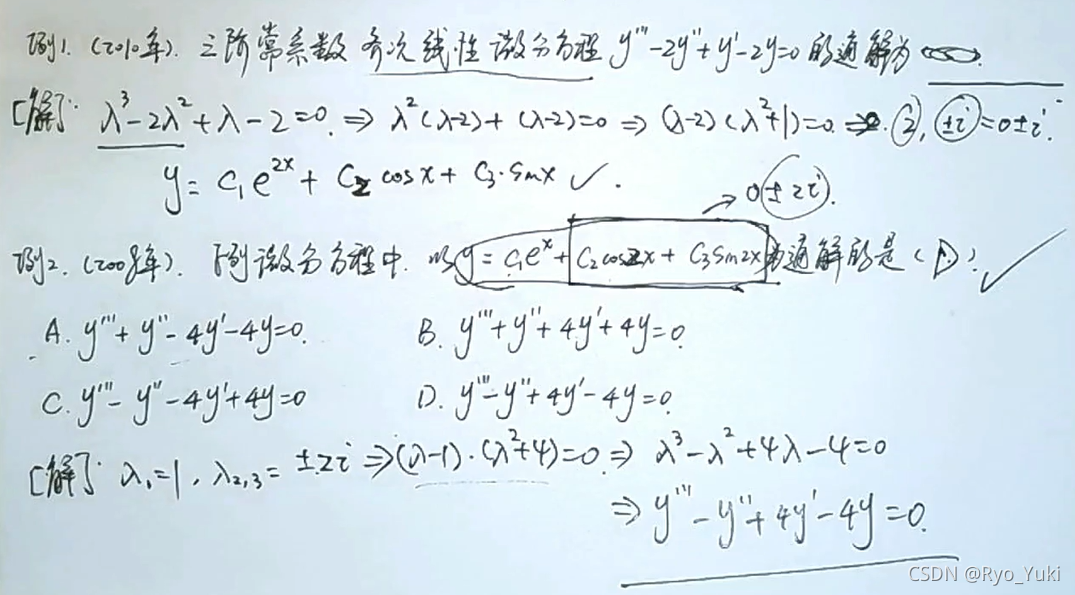 例1. (2010年). 三阶常系数齐次线性微分方程 y'''-2y''+y'-2y=0 的通解为
[解]: λ³-2λ²+λ-2=0. ⇒ λ²(λ-2)+(λ-2)=0 ⇒ (λ-2)(λ²+1)=0. ⇒ 2, ±i =0±i.
y= C₁e^{2x} + C₂ cosx + C₃·sinx ✓.
→ 0±2i.
例2. (2008年). 下列微分方程中. 以 y=C₁e^x+C₂cos2x+C₃sin2x 为通解的是 (D). ✓
A. y'''+y''-4y'-4y=0. B. y'''+y''+4y'+4y=0.
C. y'''-y''-4y'+4y=0 D. y'''-y''+4y'-4y=0.
[解] λ₁=1, λ₂,₃= ±2i ⇒ (λ-1)·(λ²+4)=0. ⇒ λ³-λ²+4λ-4=0
⇒ y'''-y''+4y'-4y=0.
CSDN @Ryo_Yuki